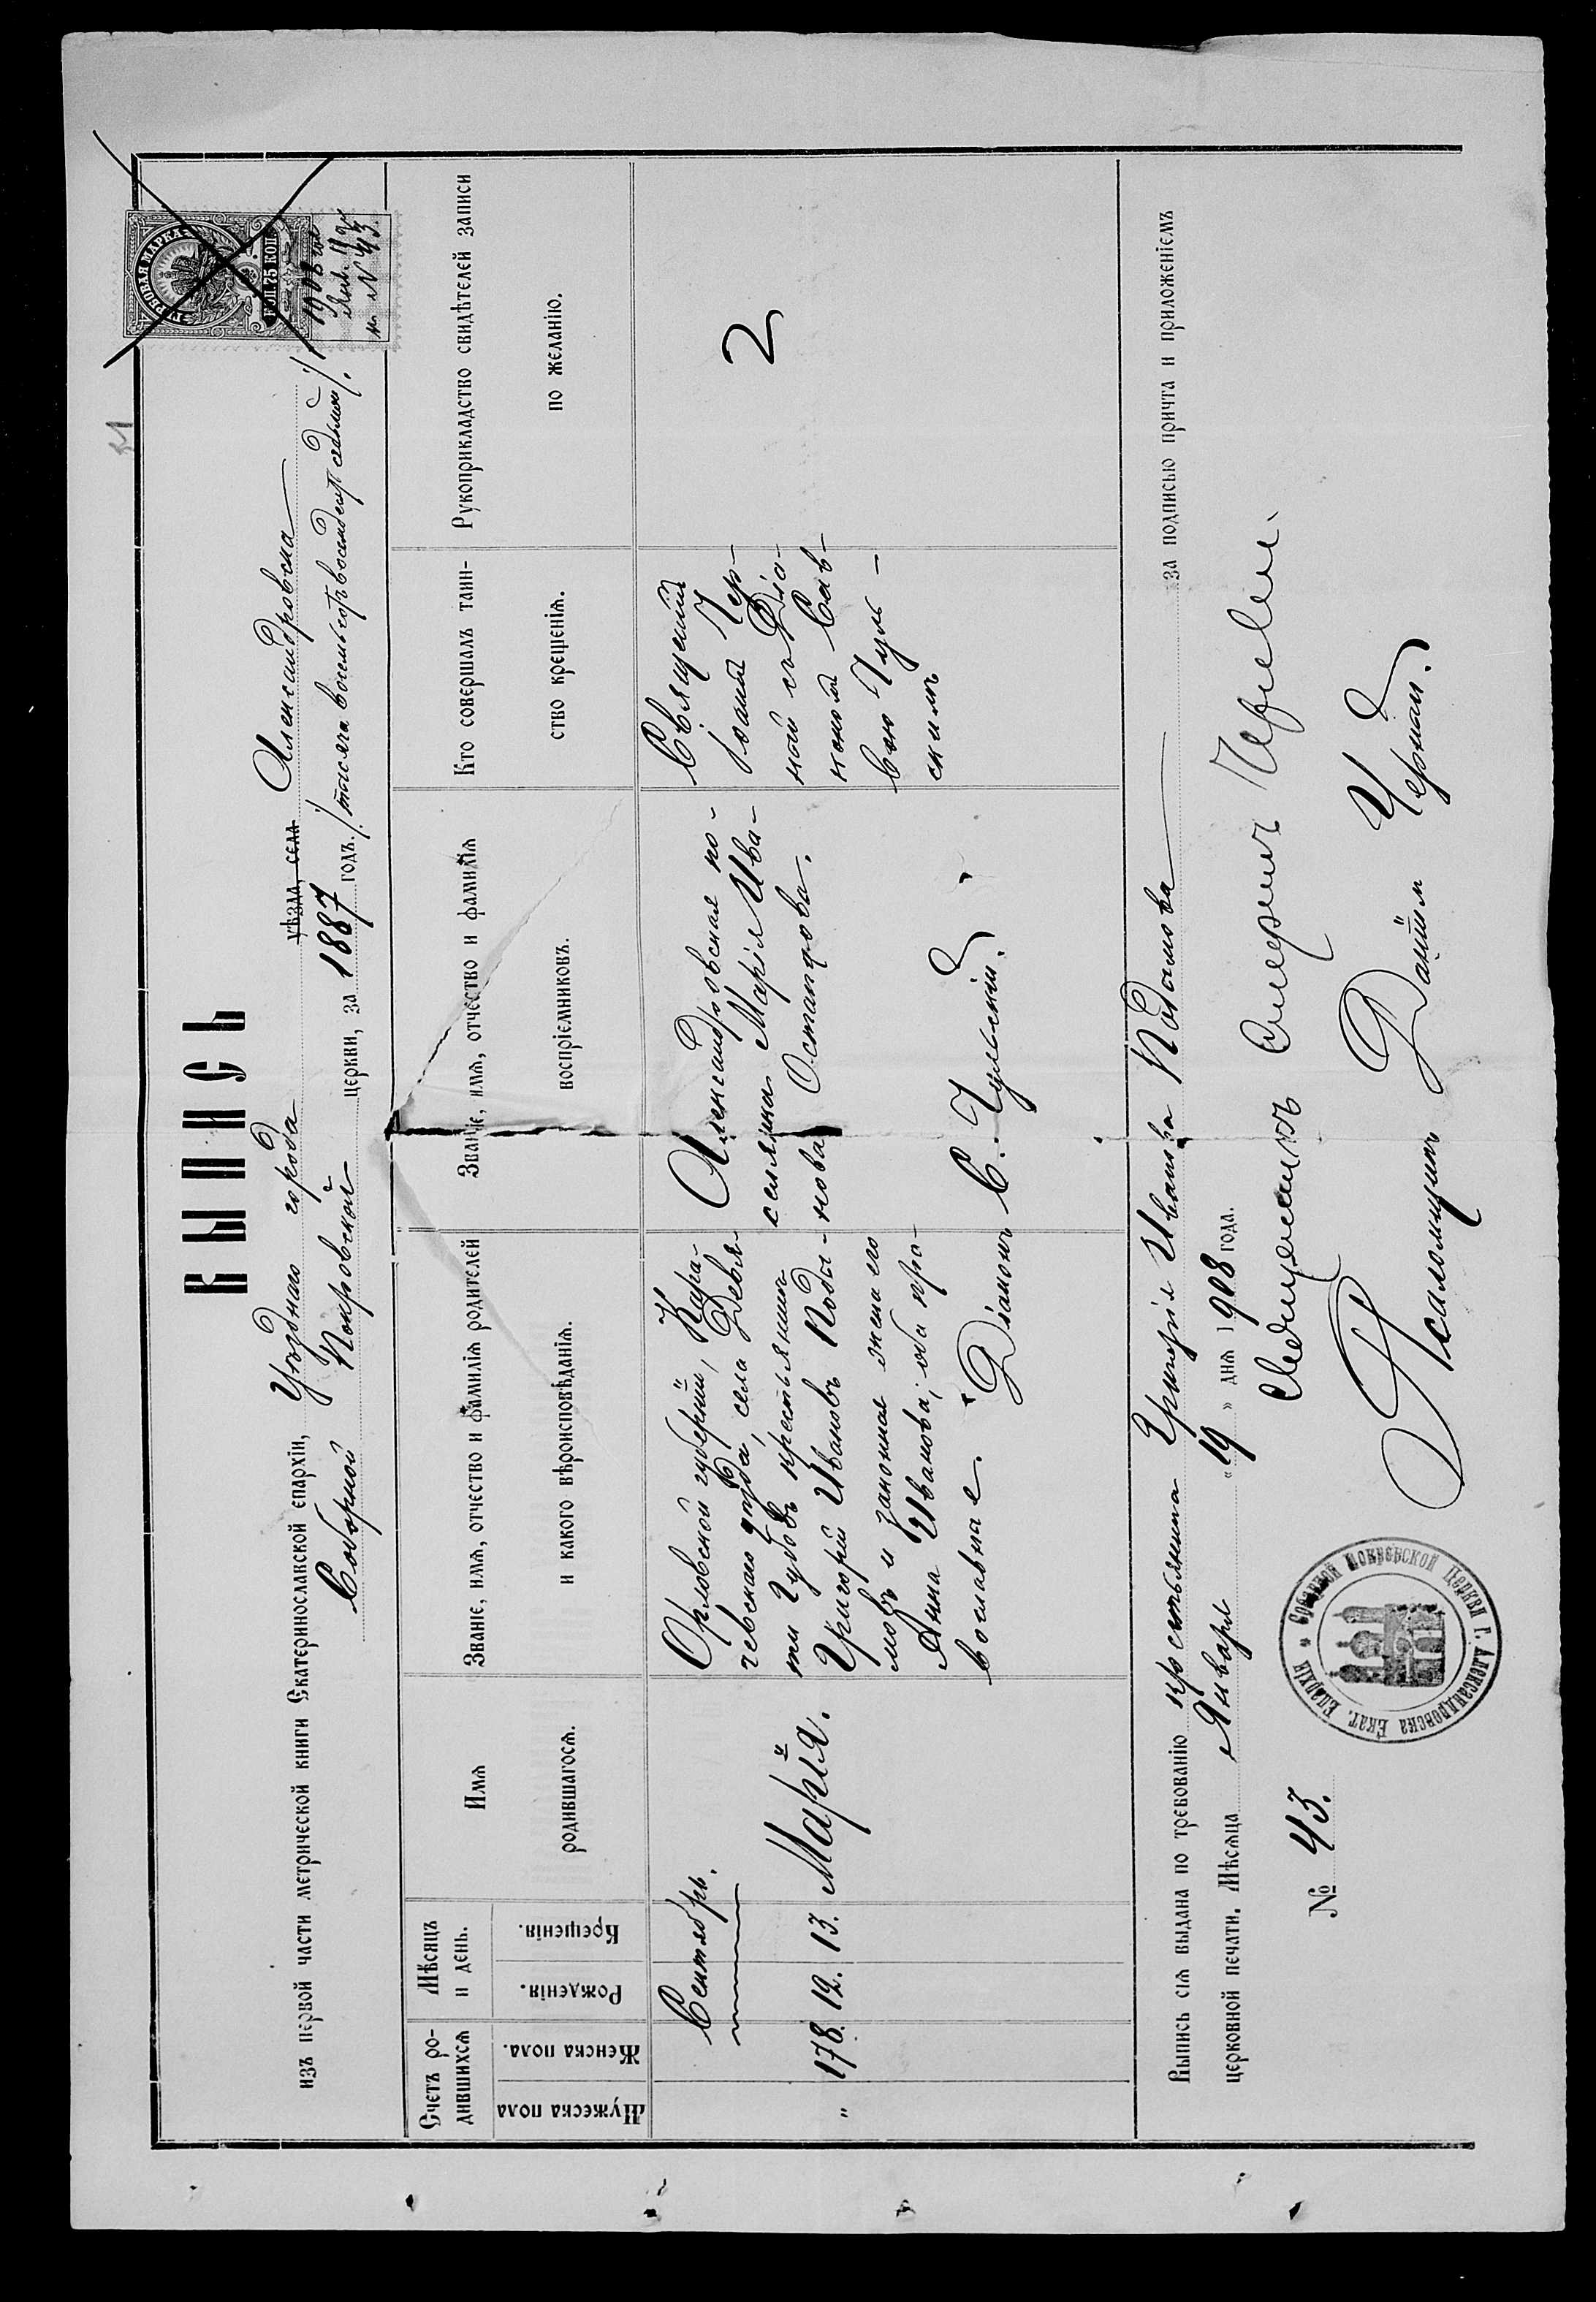 ВЫПИСЬ
изъ первой части метрической книги Екатеринославской епархіи, Уѣзднаго города уѣзда, села Александровска
Соборной Покровской церкви, за 1887 годъ. /: тысяча восемьсотъ восемдесятъ седьмой :/.
ГЕРБОВАЯ МАРКА
КОП. 75 КОП.
1908 года
Янв. 19 дня
на № 43.
Счетъ ро-
дившихся
Мужеска пола
Женска пола.
Мѣсяцъ
и день.
Рожденія.
Крещенія.
Имя
родившагося.
Званіе, имя, отчество и фамилія родителей
и какого вѣроисповѣданія.
Званіе, имя, отчество и фамилія
воспріемниковъ.
Кто совершалъ таин-
ство крещенія.
Рукоприкладство свидѣтелей записи
по желанію.
Сентябрь.
" 178. 12. 13. Марія.
Орловской губерніи, Кара-
чевскаго уѣзда, села Девя-
ти Дубовъ крестьянинъ
Григорій Ивановъ
и законная жена его
Анна Иванова; оба пра-
вославные.
Александровская по-
селянка Марія Ива-
нова Остапцова.
Священникъ
Іоаннъ Чер-
ной съ Діа-
кономъ Сав-
вою Гуль-
скимъ
2
Діаконъ С. Гульскій.
Выпись сія выдана по требованію крестьянина Григорія Иванова за подписью причта и приложеніемъ
церковной печати. Мѣсяца Января „19" дня 1908 года.
Священникъ
Псаломщикъ Даніилъ
№ 43.
Соборной Покровской Церкви г. Александровска Екат. Епархіи